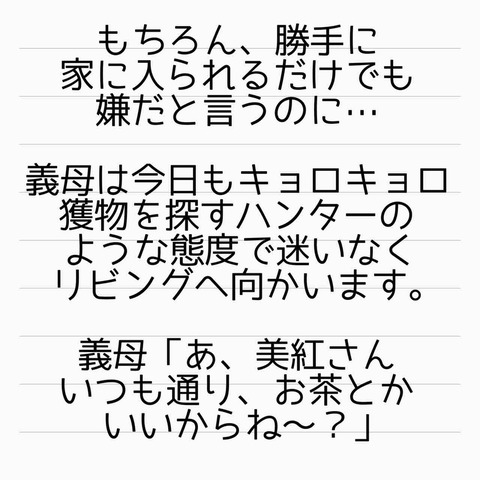 もちろん、勝手に
家に入られるだけでも
嫌だと言うのに…
義母は今日もキョロキョロ
獲物を探すハンターの
ような態度で迷いなく
リビングへ向かいます。
義母「あ、美紅さん
いつも通り、お茶とか
いいからね〜？」